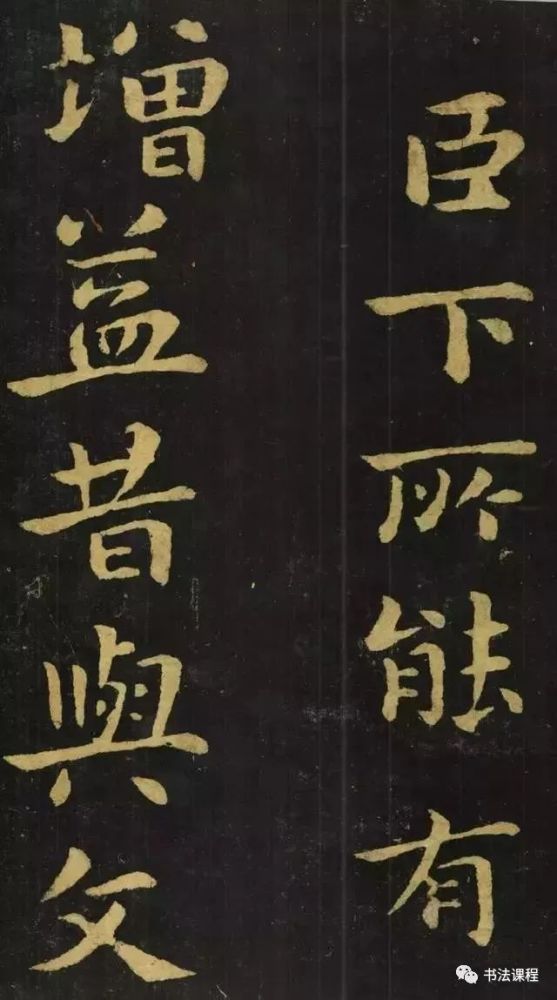 臣下所能有
增益昔與文
书法课程